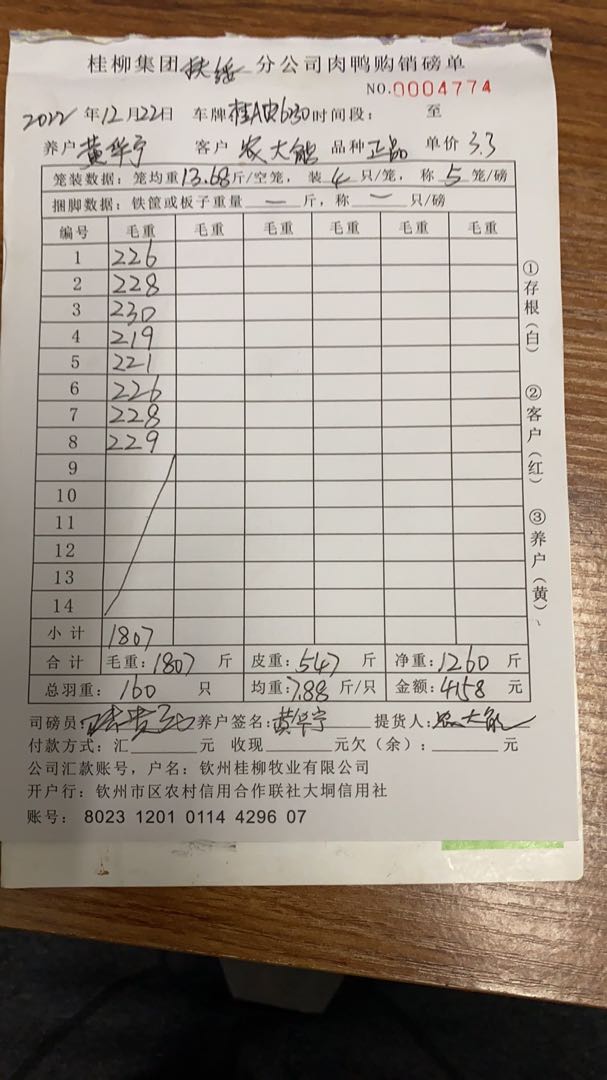 桂柳集团扶绥分公司肉鸭购销磅单
NO.0004774
2022年12月22日 车牌桂A 6230时间段： 至
养户黄华宁 客户农大能 品种正品 单价3.3
笼装数据：笼均重13.68斤/空笼，装4只/笼，称5笼/磅
捆脚数据：铁筐或板子重量一斤，称一只/磅
编号 毛重 毛重 毛重 毛重 毛重 毛重
1 226
2 228
3 230
4 219
5 221
6 226
7 228
8 229
9
10
11
12
13
14
小计 1807
合计 毛重：1807斤 皮重：547斤 净重：1260斤
总羽重：160只 均重：7.88斤/只 金额：4158元
司磅员： 养户签名：黄华宁 提货人：农大能
付款方式：汇____元 收现____元欠（余）：____元
公司汇款账号，户名：钦州桂柳牧业有限公司
开户行：钦州市区农村信用合作联社大垌信用社
账号：8023 1201 0114 4296 07
①存根（白）
②客户（红）
③养户（黄）